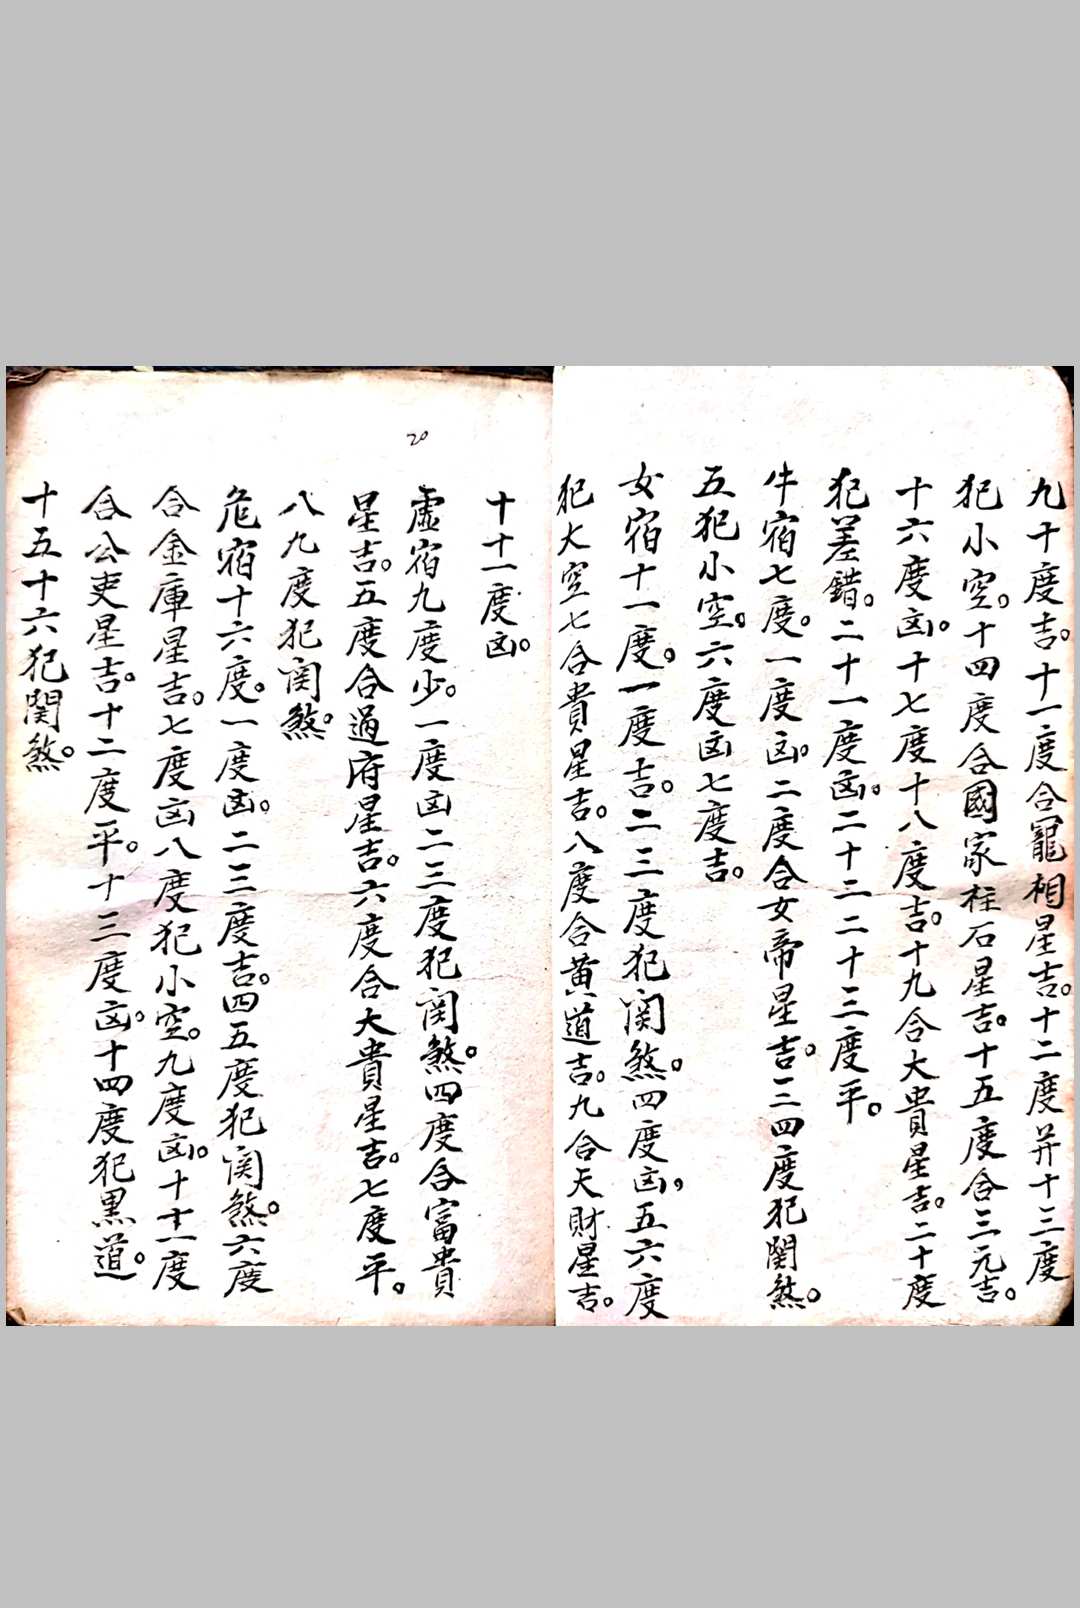 九十度吉。十一度合寵相星吉。十二度并十三度
犯小空。十四度合國家柱石星吉。十五度合三元吉。
十六度凶。十七度十八度吉。十九合大貴星吉。二十度
犯差錯。二十一度凶。二十二二十三度平。
牛宿七度。一度凶。二度合女帝星吉。三四度犯関煞。
五犯小空。六度凶七度吉。
女宿十一度。一度吉。二三度犯関煞。四度凶，五六度
犯大空七合貴星吉。八度合黄道吉。九合天財星吉。
20
十十一度凶。
虛宿九度少。一度凶二三度犯関煞。四度合富貴
星吉。五度合過府星吉。六度合大貴星吉。七度平。
八九度犯関煞。
危宿十六度。一度凶。二三度吉。四五度犯関煞。六度
合金庫星吉。七度凶八度犯小空。九度凶。十十一度
合公吏星吉。十二度平。十三度凶。十四度犯黒道。
十五十六犯関煞。